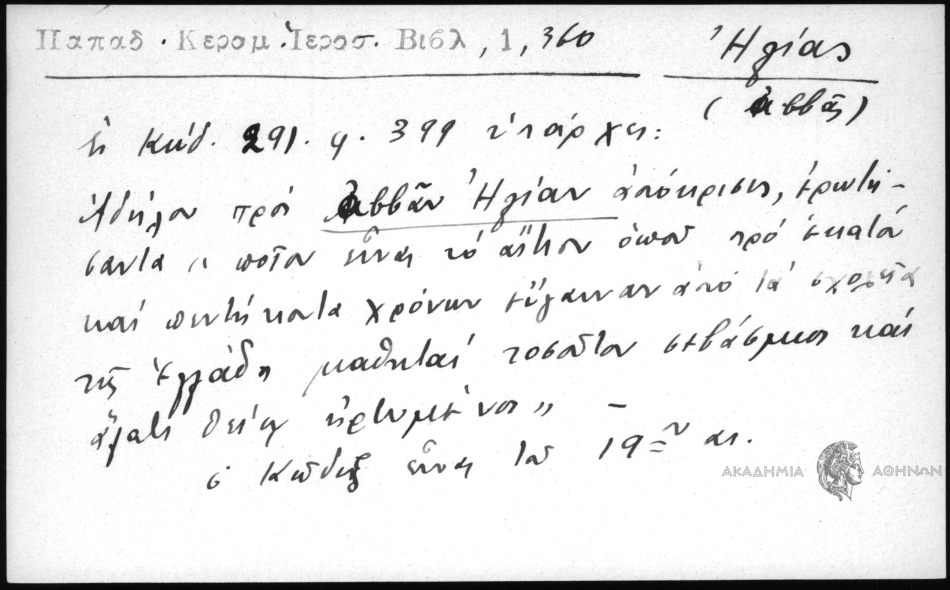 Παπαδ. Κεραμ. Ἱεροσ. Βιβλ, 1, 360 Ἠλίας
(ἀββᾶς)
ἐν Κώδ. 291. φ. 399 ὑπάρχει:
Ἀδήλου πρὸς ἀββᾶν Ἠλίαν ἀπόκρισις, ἐρωτή-
σαντα „ ποῖον εἶναι τὸ αἴτιον ὁποῦ πρὸ ἑκατὸν
καὶ πεντήκοντα χρόνων εὔγαιναν ἀπὸ τὰ σχολεῖα
τῆς Ἑλλάδος μαθηταὶ τοσοῦτον σεβάσμιοι καὶ
ἅλατι θείῳ ἠρτυμένοι „ –
ὁ Κῶδιξ εἶναι τοῦ 19ου αι.
ΑΚΑΔΗΜΙΑ ΑΘΗΝΩΝ